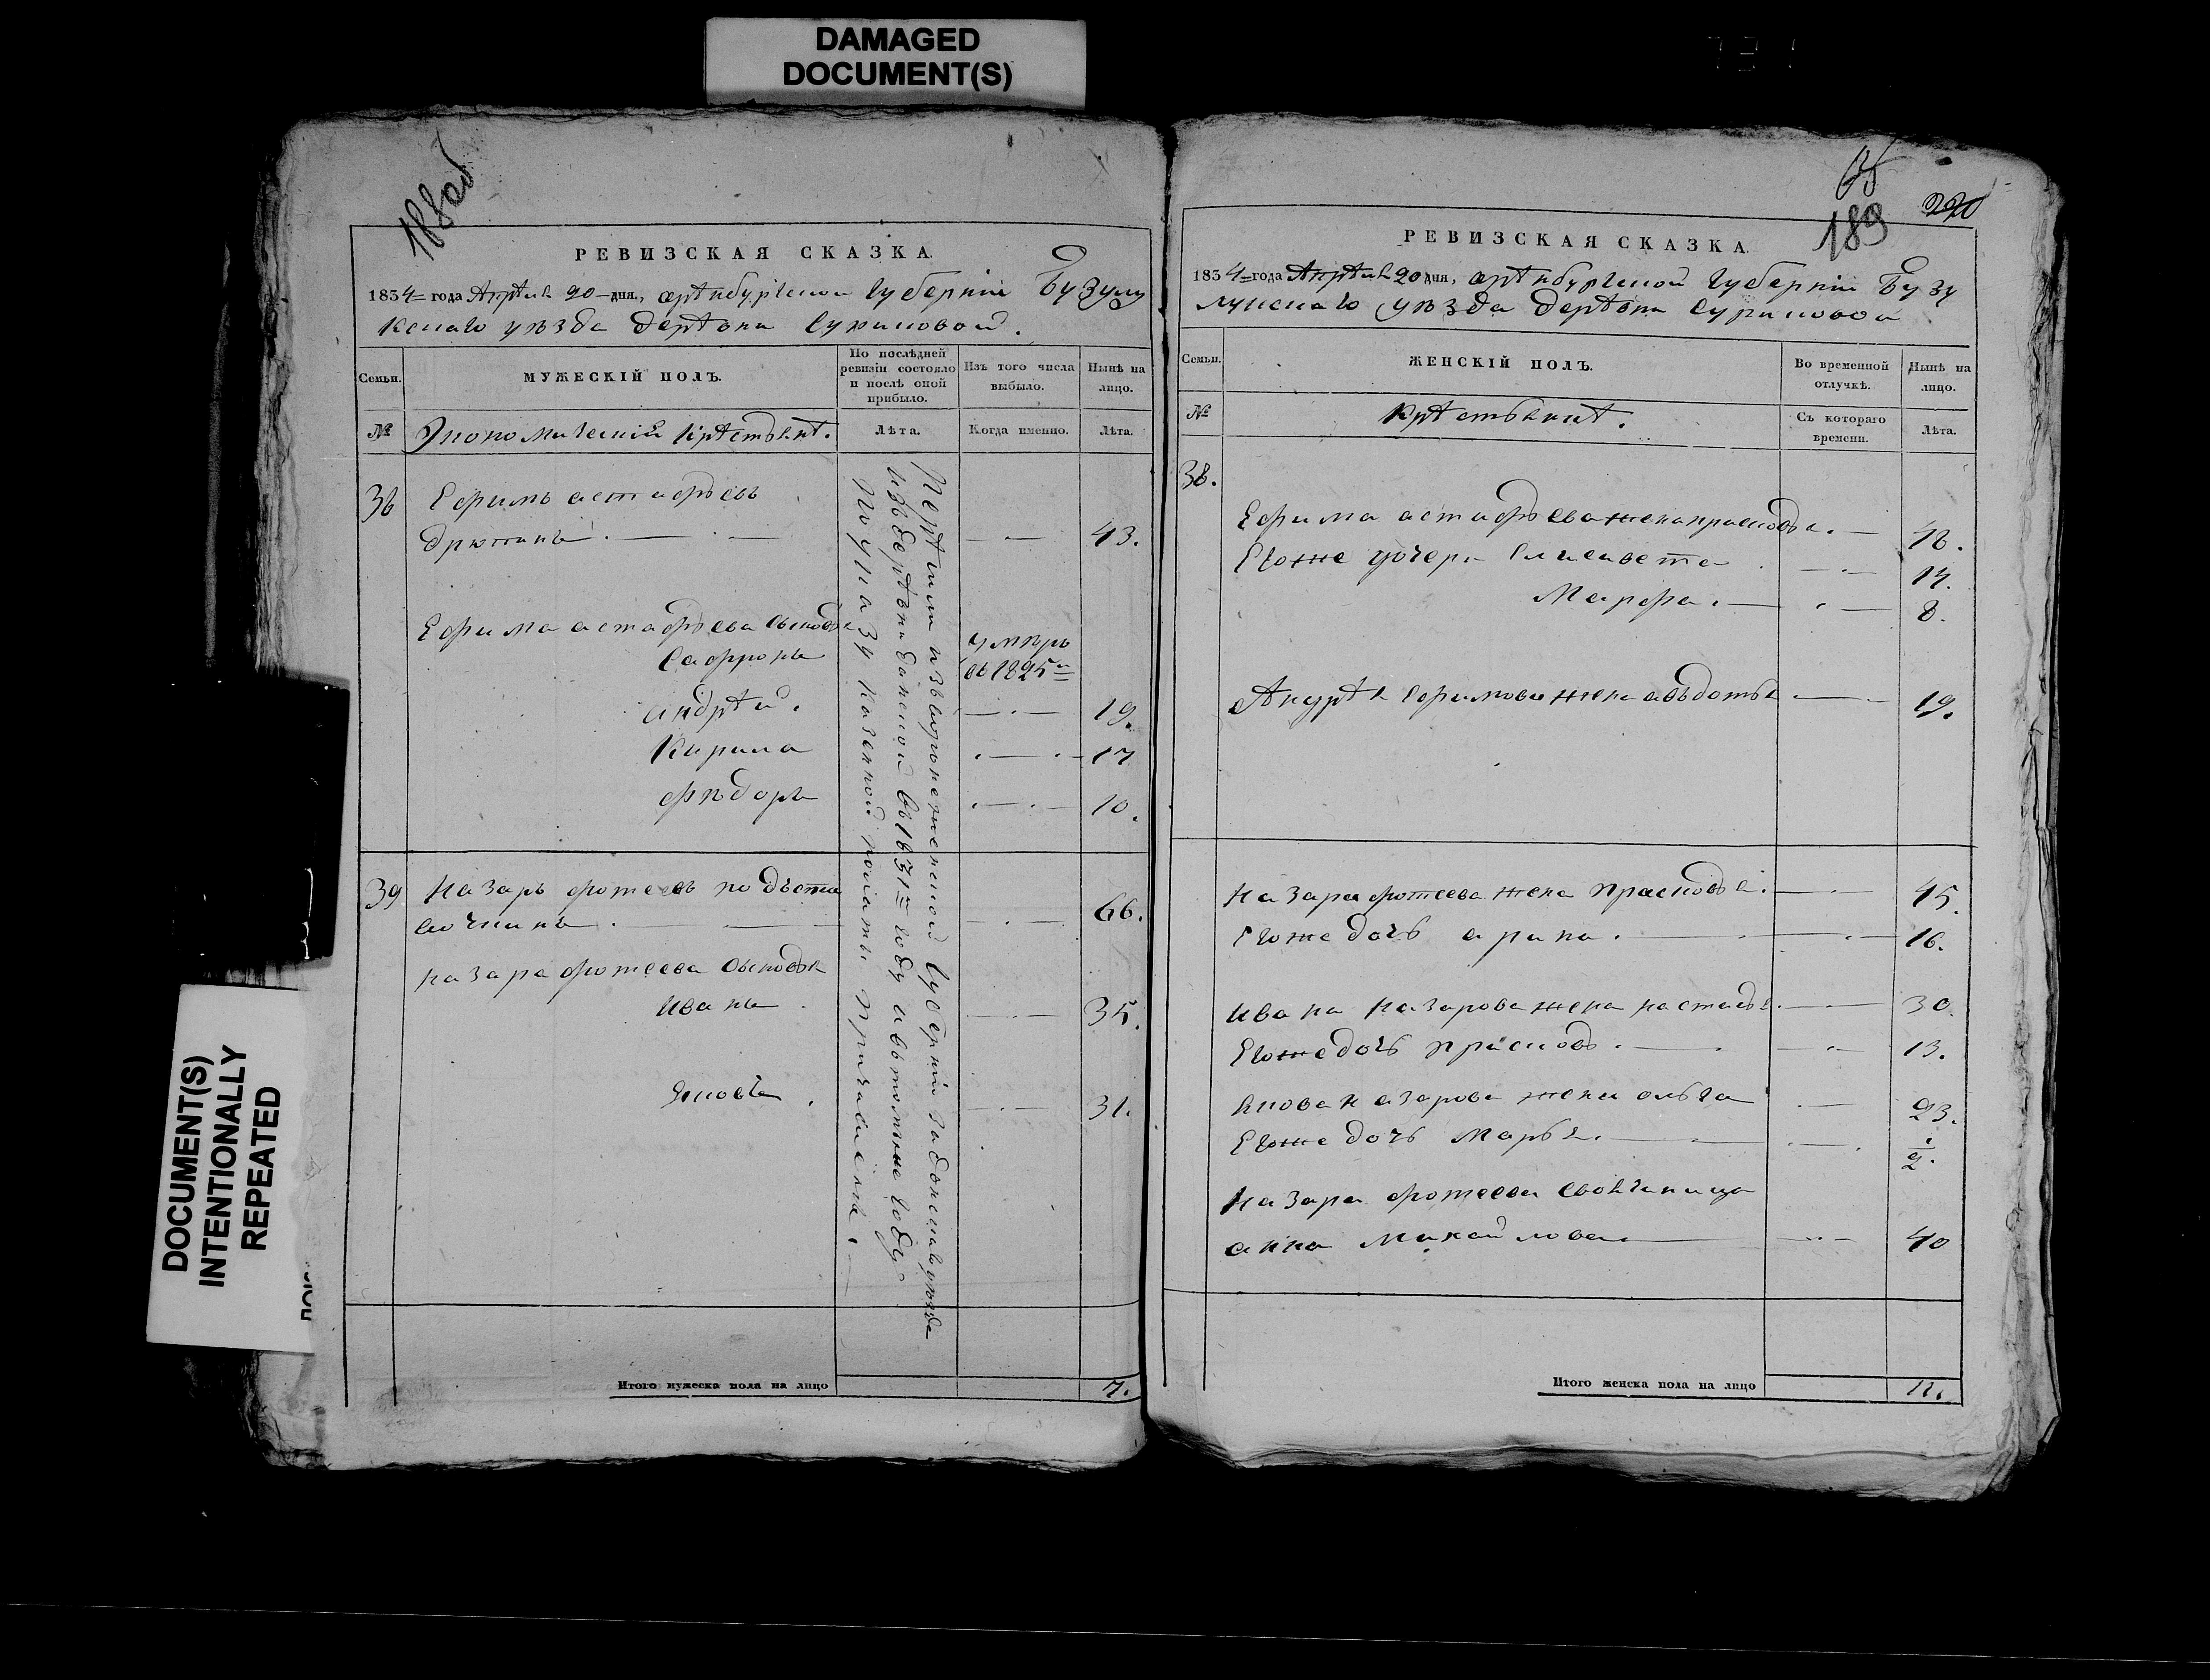 DAMAGED
DOCUMENT(S)
188об
РЕВИЗСКАЯ СКАЗКА.
1834 года Апреля 20 дня, оренбургской губернии Бузулу
кскаго уезда деревни Суриковой.
Семьи.
МУЖЕСКІЙ ПОЛЪ.
По послѣдней ревизіи состояло и послѣ оной прибыло.
Изъ того числа выбыло.
Нынѣ на лицо.
№
Экономический крестьяне.
Лѣта.
Когда именно.
Лѣта.
38 Ефимъ астафьевъ
43.
Ефима астафьева сыновья
Сафронъ умеръ
въ 1825
андрей. 19.
Кирила 17
федоръ 10.
39 Назаръ фотеевъ
66.
назара фотеева сыновья
иванъ 35.
Яковъ 31.
губернии задонскаго уезда
въ 1831 году
по указу казенной полаты причислены.
Итого мужеска пола на лицо 7.
65
189
220
РЕВИЗСКАЯ СКАЗКА.
1834 года Апреля 20 дня, оренбургской губернии Бузу
лукскаго уезда деревни Суриковой
Семьи.
ЖЕНСКІЙ ПОЛЪ.
Во временной отлучкѣ.
Нынѣ на лицо.
№
Крестьяне.
Съ котораго времени.
Лѣта.
38.
Ефима астафьева жена прасковья. 48.
Егоже дочери Елисавета 14.
Марфа. 8.
Андрея Ефимова жена авдотья 19.
Назара фотеева жена прасковья. 45.
Егоже дочь арина. 16.
ивана Назарова жена настасья. 30.
Егоже дочь прасковья. 13.
якова назарова жена ольга 23.
Егоже дочь марья. 1/2.
Назара фотеева
анна михайлова 40
Итого женска пола на лицо 11.
DOCUMENT(S)
INTENTIONALLY
REPEATED